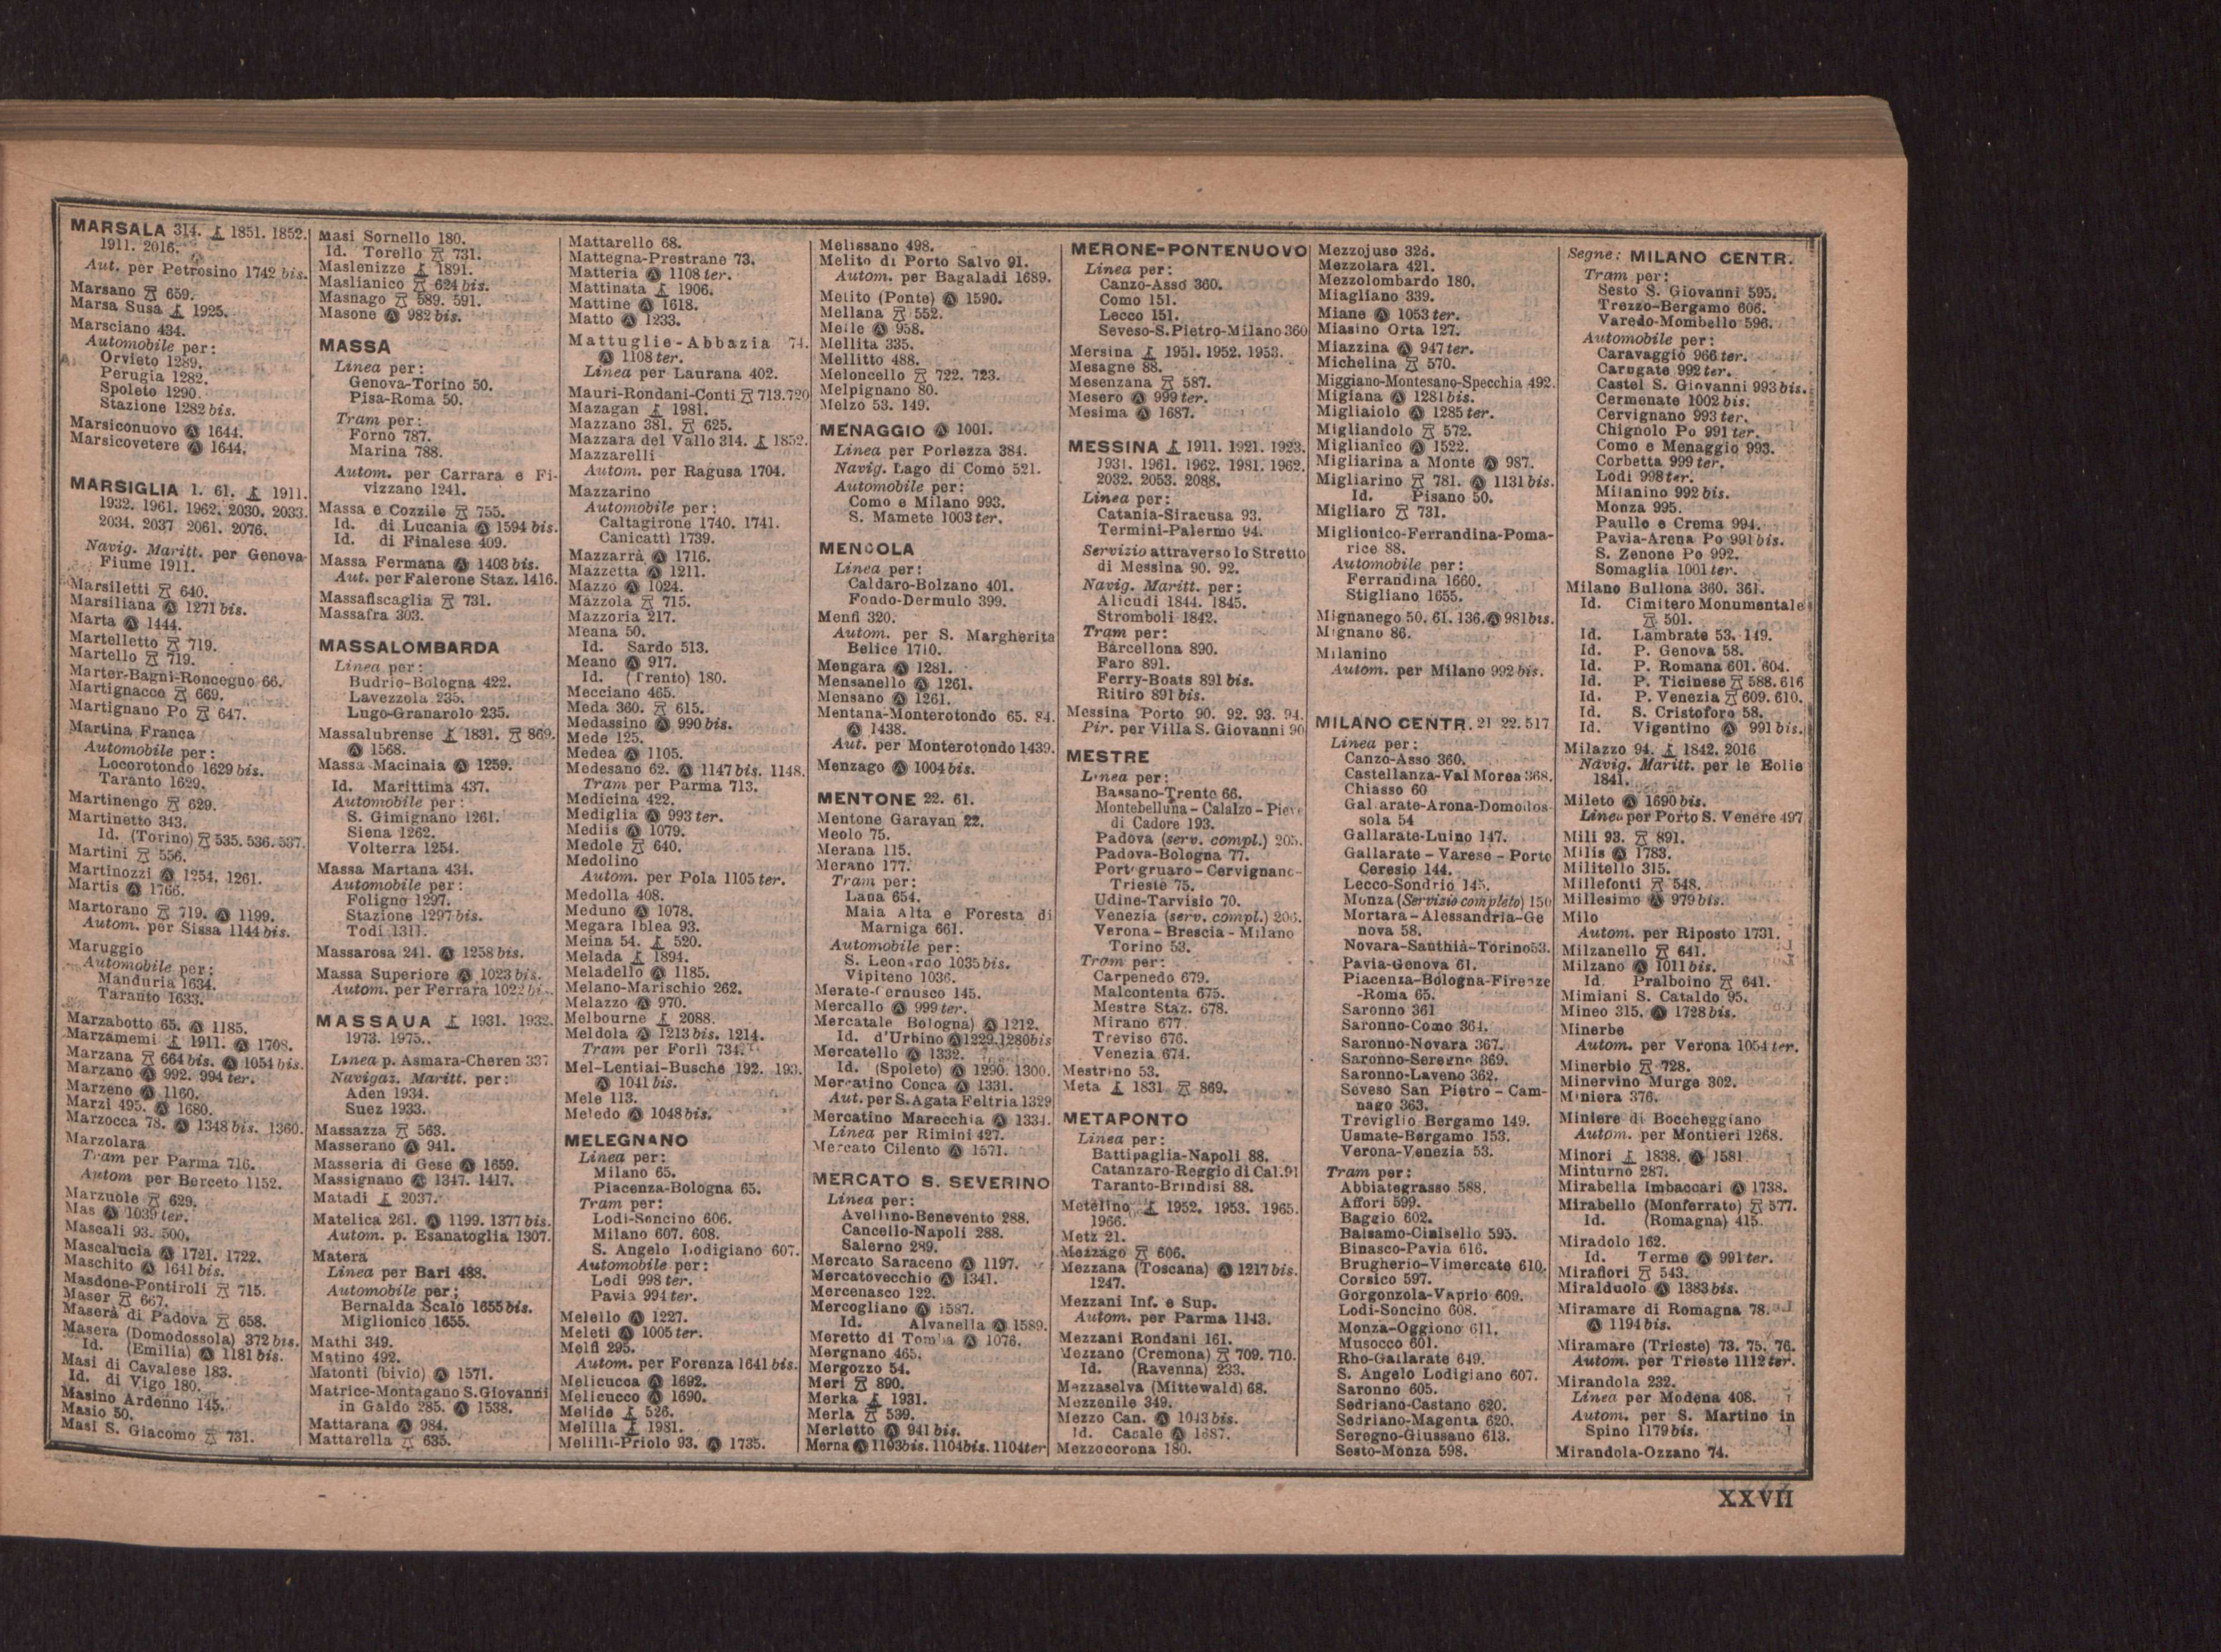 MARSALA 314. 1851. 1852.
1911. 2016.
Aut. per Petrosino 1742 bis.
Marsano 659.
Marsa Susa 1925.
Marsciano 434.
Automobile per:
Orvieto 1289.
Perugia 1282.
Spoleto 1290.
Stazione 1282 bis.
Marsiconuovo Ⓐ 1644.
Marsicovetere Ⓐ 1644.
MARSIGLIA 1. 61. 1911.
1932. 1961. 1962. 2030. 2033.
2034. 2037 2061. 2076.
Navig. Maritt. per Genova-
Fiume 1911.
Marsiletti 640.
Marsiliana Ⓐ 1271 bis.
Marta Ⓐ 1444.
Martelletto 719.
Martello 719.
Marter-Bagni-Roncegno 66.
Martignacco 669.
Martignano Po 647.
Martina Franca
Automobile per:
Locorotondo 1629 bis.
Taranto 1629.
Martinengo 629.
Martinetto 343.
Id. (Torino) 535. 536. 537.
Martini 556.
Martinozzi Ⓐ 1254. 1261.
Martis Ⓐ 1766.
Martorano 719. Ⓐ 1199.
Autom. per Sissa 1144 bis.
Maruggio
Automobile per:
Manduria 1634.
Taranto 1633.
Marzabotto 65. Ⓐ 1185.
Marzamemi 1911. Ⓐ 1708.
Marzana 664 bis. Ⓐ 1054 bis.
Marzano Ⓐ 992. 994 ter.
Marzeno Ⓐ 1160.
Marzi 495. Ⓐ 1680.
Marzocca 78. Ⓐ 1348 bis. 1360.
Marzolara
Tram per Parma 716.
Autom per Berceto 1152.
Marzuole 629.
Mas Ⓐ 1039 ter.
Mascali 93. 500.
Mascalucia Ⓐ 1721. 1722.
Maschito Ⓐ 1641 bis.
Masdone-Pontiroli 715.
Maser 667.
Maserà di Padova 658.
Masera (Domodossola) 372 bis.
Id. (Emilia) Ⓐ 1181 bis.
Masi di Cavalese 183.
Id. di Vigo 180.
Masino Ardenno 145.
Masio 50.
Masi S. Giacomo 731.
Masi Sornello 180.
Id. Torello 731.
Maslenizze 1891.
Maslianico 624 bis.
Masnago 589. 591.
Masone Ⓐ 982 bis.
MASSA
Linea per:
Genova-Torino 50.
Pisa-Roma 50.
Tram per:
Forno 787.
Marina 788.
Autom. per Carrara e Fi-
vizzano 1241.
Massa e Cozzile 755.
Id. di Lucania Ⓐ 1594 bis.
Id. di Finalese 409.
Massa Fermana Ⓐ 1403 bis.
Aut. per Falerone Staz. 1416.
Massafiscaglia 731.
Massafra 303.
MASSALOMBARDA
Linea per:
Budrio-Bologna 422.
Lavezzola 235.
Lugo-Granarolo 235.
Massalubrense 1831. 869.
Ⓐ 1568.
Massa Macinaia Ⓐ 1259.
Id. Marittima 437.
Automobile per:
S. Gimignano 1261.
Siena 1262.
Volterra 1254.
Massa Martana 434.
Automobile per:
Foligno 1297.
Stazione 1297 bis.
Todi 1311.
Massarosa 241. Ⓐ 1258 bis.
Massa Superiore Ⓐ 1023 bis.
Autom. per Ferrara 1022
MASSAUA 1931. 1932.
1973. 1975.
Linea p. Asmara-Cheren 337
Navigaz. Maritt. per:
Aden 1934.
Suez 1933.
Massazza 563.
Masserano Ⓐ 941.
Masseria di Gese Ⓐ 1659.
Massignano Ⓐ 1347. 1417.
Matadi 2037.
Matelica 261. Ⓐ 1199. 1377 bis.
Autom. p. Esanatoglia 1307.
Matera
Linea per Bari 488.
Automobile per;
Bernalda Scalo 1655 bis.
Miglionico 1655.
Mathi 349.
Matino 492.
Matonti (bivio) Ⓐ 1571.
Matrice-Montagano S. Giovanni
in Galdo 285. Ⓐ 1538.
Mattarana Ⓐ 984.
Mattarella 635.
Mattarello 68.
Mattegna-Prestrane 73.
Matteria Ⓐ 1108 ter.
Mattinata 1906.
Mattine Ⓐ 1618.
Matto Ⓐ 1233.
Mattuglie-Abbazia 74.
Ⓐ 1108 ter.
Linea per Laurana 402.
Mauri-Rondani-Conti 713.720
Mazagan 1981.
Mazzano 381. 625.
Mazzara del Vallo 314. 1852.
Mazzarelli
Autom. per Ragusa 1704.
Mazzarino
Automobile per:
Caltagirone 1740. 1741.
Canicattì 1739.
Mazzarrà Ⓐ 1716.
Mazzetta Ⓐ 1211.
Mazzo Ⓐ 1024.
Mazzola 715.
Mazzoria 217.
Meana 50.
Id. Sardo 513.
Meano Ⓐ 917.
Id. (Trento) 180.
Mecciano 465.
Meda 360. 615.
Medassino Ⓐ 990 bis.
Mede 125.
Medea Ⓐ 1105.
Medesano 62. Ⓐ 1147 bis. 1148.
Tram per Parma 713.
Medicina 422.
Mediglia Ⓐ 993 ter.
Mediis Ⓐ 1079.
Medole 640.
Medolino
Autom. per Pola 1105 ter.
Medolla 408.
Meduno Ⓐ 1078.
Megara Iblea 93.
Meina 54. 520.
Melada 1894.
Meladello Ⓐ 1185.
Melano-Marischio 262.
Melazzo Ⓐ 970.
Melbourne 2088.
Meldola Ⓐ 1213 bis. 1214.
Tram per Forlì 734.
Mel-Lentiai-Busche 192. 193.
Ⓐ 1041 bis.
Mele 113.
Meledo Ⓐ 1048 bis.
MELEGNANO
Linea per:
Milano 65.
Piacenza-Bologna 65.
Tram per:
Lodi-Soncino 606.
Milano 607. 608.
S. Angelo Lodigiano 607.
Automobile per:
Lodi 998 ter.
Pavia 994 ter.
Melello Ⓐ 1227.
Meleti Ⓐ 1005 ter.
Melfi 295.
Autom. per Forenza 1641 bis.
Melicucca Ⓐ 1692.
Melicucco Ⓐ 1690.
Melide 526.
Melilla 1981.
Melilli-Priolo 93. Ⓐ 1735.
Melissano 498.
Melito di Porto Salvo 91.
Autom. per Bagaladi 1689.
Melito (Ponte) Ⓐ 1590.
Mellana 552.
Melle Ⓐ 958.
Mellita 335.
Mellitto 488.
Meloncello 722. 723.
Melpignano 80.
Melzo 53. 149.
MENAGGIO Ⓐ 1001.
Linea per Porlezza 384.
Navig. Lago di Como 521.
Automobile per:
Como e Milano 993.
S. Mamete 1003 ter.
MENCOLA
Linea per:
Caldaro-Bolzano 401.
Fondo-Dermulo 399.
Menfi 320.
Autom. per S. Margherita
Belice 1710.
Mengara Ⓐ 1281.
Mensanello Ⓐ 1261.
Mensano Ⓐ 1261.
Mentana-Monterotondo 65. 84.
Ⓐ 1438.
Aut. per Monterotondo 1439.
Menzago Ⓐ 1004 bis.
MENTONE 22. 61.
Mentone Garavan 22.
Meolo 75.
Merana 115.
Merano 177.
Tram per:
Lana 654.
Maia Alta e Foresta di
Marniga 661.
Automobile per:
S. Leonardo 1035 bis.
Vipiteno 1036.
Merate-Cernusco 145.
Mercallo Ⓐ 999 ter.
Mercatale Bologna) Ⓐ 1212.
Id. d'Urbino Ⓐ 1229.1280 bis
Mercatello Ⓐ 1332.
Id. (Spoleto) Ⓐ 1290. 1300.
Mercatino Conca Ⓐ 1331.
Aut. per S. Agata Feltria 1329
Mercatino Marecchia Ⓐ 1334.
Linea per Rimini 427.
Mercato Cilento Ⓐ 1571.
MERCATO S. SEVERINO
Linea per:
Avellino-Benevento 288.
Cancello-Napoli 288.
Salerno 289.
Mercato Saraceno Ⓐ 1197.
Mercatovecchio Ⓐ 1341.
Mercenasco 122.
Mercogliano Ⓐ 1587.
Id. Alvanella Ⓐ 1589.
Meretto di Tomba Ⓐ 1076.
Mergnano 465.
Mergozzo 54.
Meri 890.
Merka 1931.
Merla 539.
Merletto Ⓐ 941 bis.
Merna Ⓐ 1103bis. 1104bis. 1104ter
MERONE-PONTENUOVO
Linea per:
Canzo-Asso 360.
Como 151.
Lecco 151.
Seveso-S. Pietro-Milano 360
Mersina 1951. 1952. 1953.
Mesagne 88.
Mesenzana 587.
Mesero Ⓐ 999 ter.
Mesima Ⓐ 1687.
MESSINA 1911. 1921. 1923.
1931. 1961. 1962. 1981. 1962.
2032. 2053. 2088.
Linea per:
Catania-Siracusa 93.
Termini-Palermo 94.
Servizio attraverso lo Stretto
di Messina 90. 92.
Navig. Maritt. per:
Alicudi 1844. 1845.
Stromboli 1842.
Tram per:
Barcellona 890.
Faro 891.
Ferry-Boats 891 bis.
Ritiro 891 bis.
Messina Porto 90. 92. 93. 94.
Pir. per Villa S. Giovanni 90
MESTRE
Linea per:
Bassano-Trento 66.
Montebelluna - Calalzo - Pieve
di Cadore 193.
Padova (serv. compl.) 205.
Padova-Bologna 77.
Portogruaro - Cervignano-
Trieste 75.
Udine-Tarvisio 70.
Venezia (serv. compl.) 206.
Verona - Brescia - Milano
Torino 53.
Tram per:
Carpenedo 679.
Malcontenta 675.
Mestre Staz. 678.
Mirano 677
Treviso 676.
Venezia 674.
Mestrino 53.
Meta 1831 869.
METAPONTO
Linea per:
Battipaglia-Napoli 88.
Catanzaro-Reggio di Cal.91
Taranto-Brindisi 88.
Metelino 1952. 1953. 1965.
1966.
Metz 21.
Mezzago 606.
Mezzana (Toscana) Ⓐ 1217 bis.
1247.
Mezzani Inf. e Sup.
Autom. per Parma 1143.
Mezzani Rondani 161.
Mezzano (Cremona) 709. 710.
Id. (Ravenna) 233.
Mezzaselva (Mittewald) 68.
Mezzenile 349.
Mezzo Can. Ⓐ 1043 bis.
Id. Casale Ⓐ 1687.
Mezzocorona 180.
Mezzojuso 326.
Mezzolara 421.
Mezzolombardo 180.
Miagliano 339.
Miane Ⓐ 1053 ter.
Miasino Orta 127.
Miazzina Ⓐ 947 ter.
Michelina 570.
Miggiano-Montesano-Specchia 492.
Migiana Ⓐ 1281 bis.
Migliaiolo Ⓐ 1285 ter.
Migliandolo 572.
Miglianico Ⓐ 1522.
Migliarina a Monte Ⓐ 987.
Migliarino 781. Ⓐ 1131 bis.
Id. Pisano 50.
Migliaro 731.
Miglionico-Ferrandina-Poma-
rice 88.
Automobile per:
Ferrandina 1660.
Stigliano 1655.
Mignanego 50. 61. 136. Ⓐ 981bis.
Mignano 86.
Milanino
Autom. per Milano 992 bis.
MILANO CENTR. 21 22. 517
Linea per:
Canzo-Asso 360.
Castellanza-Val Morea 368.
Chiasso 60
Gallarate-Arona-Domodos-
sola 54
Gallarate-Luino 147.
Gallarate - Varese - Porto
Ceresio 144.
Lecco-Sondrio 145.
Monza (Servizio completo) 150
Mortara - Alessandria-Ge
nova 58.
Novara-Santhià-Torino53.
Pavia-Genova 61.
Piacenza-Bologna-Firenze
-Roma 65.
Saronno 361
Saronno-Como 364.
Saronno-Novara 367.
Saronno-Seregno 369.
Saronno-Laveno 362.
Seveso San Pietro - Cam-
nago 363.
Treviglio Bergamo 149.
Usmate-Bergamo 153.
Verona-Venezia 53.
Tram per:
Abbiategrasso 588.
Affori 599.
Baggio 602.
Balsamo-Cinisello 595.
Binasco-Pavia 616.
Brugherio-Vimercate 610.
Corsico 597.
Gorgonzola-Vaprio 609.
Lodi-Soncino 608.
Monza-Oggiono 611.
Musocco 601.
Rho-Gallarate 649.
S. Angelo Lodigiano 607.
Saronno 605.
Sedriano-Castano 620.
Sedriano-Magenta 620.
Seregno-Giussano 613.
Sesto-Monza 598.
Segue: MILANO CENTR.
Tram per:
Sesto S. Giovanni 595.
Trezzo-Bergamo 606.
Varedo-Mombello 596.
Automobile per:
Caravaggio 966 ter.
Carugate 992 ter.
Castel S. Giovanni 993 bis.
Cermenate 1002 bis.
Cervignano 993 ter.
Chignolo Po 991 ter.
Como e Menaggio 993.
Corbetta 999 ter.
Lodi 998 ter.
Milanino 992 bis.
Monza 995.
Paullo e Crema 994.
Pavia-Arena Po 991 bis.
S. Zenone Po 992.
Somaglia 1001 ter.
Milano Bullona 360. 361.
Id. Cimitero Monumentale
501.
Id. Lambrate 53. 149.
Id. P. Genova 58.
Id. P. Romana 601. 604.
Id. P. Ticinese 588. 616
Id. P. Venezia 609. 610.
Id. S. Cristoforo 58.
Id. Vigentino Ⓐ 991 bis.
Milazzo 94. 1842. 2016
Navig. Maritt. per le Eolie
1841.
Mileto Ⓐ 1690 bis.
Linea per Porto S. Venere 497
Mili 93. 891.
Milis Ⓐ 1783.
Militello 315.
Millefonti 548.
Millesimo Ⓐ 979 bis.
Milo
Autom. per Riposto 1731.
Milzanello 641.
Milzano Ⓐ 1011 bis.
Id. Pralboino 641.
Mimiani S. Cataldo 95.
Mineo 315. Ⓐ 1728 bis.
Minerbe
Autom. per Verona 1054 ter.
Minerbio 728.
Minervino Murge 302.
Miniera 376.
Miniere di Boccheggiano
Autom. per Montieri 1268.
Minori 1838. Ⓐ 1581.
Minturno 287.
Mirabella Imbaccari Ⓐ 1738.
Mirabello (Monferrato) 577.
Id. (Romagna) 415.
Miradolo 162.
Id. Terme Ⓐ 991 ter.
Mirafiori 543.
Miralduolo Ⓐ 1383 bis.
Miramare di Romagna 78.
Ⓐ 1194 bis.
Miramare (Trieste) 73. 75. 76.
Autom. per Trieste 1112 ter.
Mirandola 232.
Linea per Modena 408.
Autom. per S. Martino in
Spino 1179 bis.
Mirandola-Ozzano 74.
XXVII